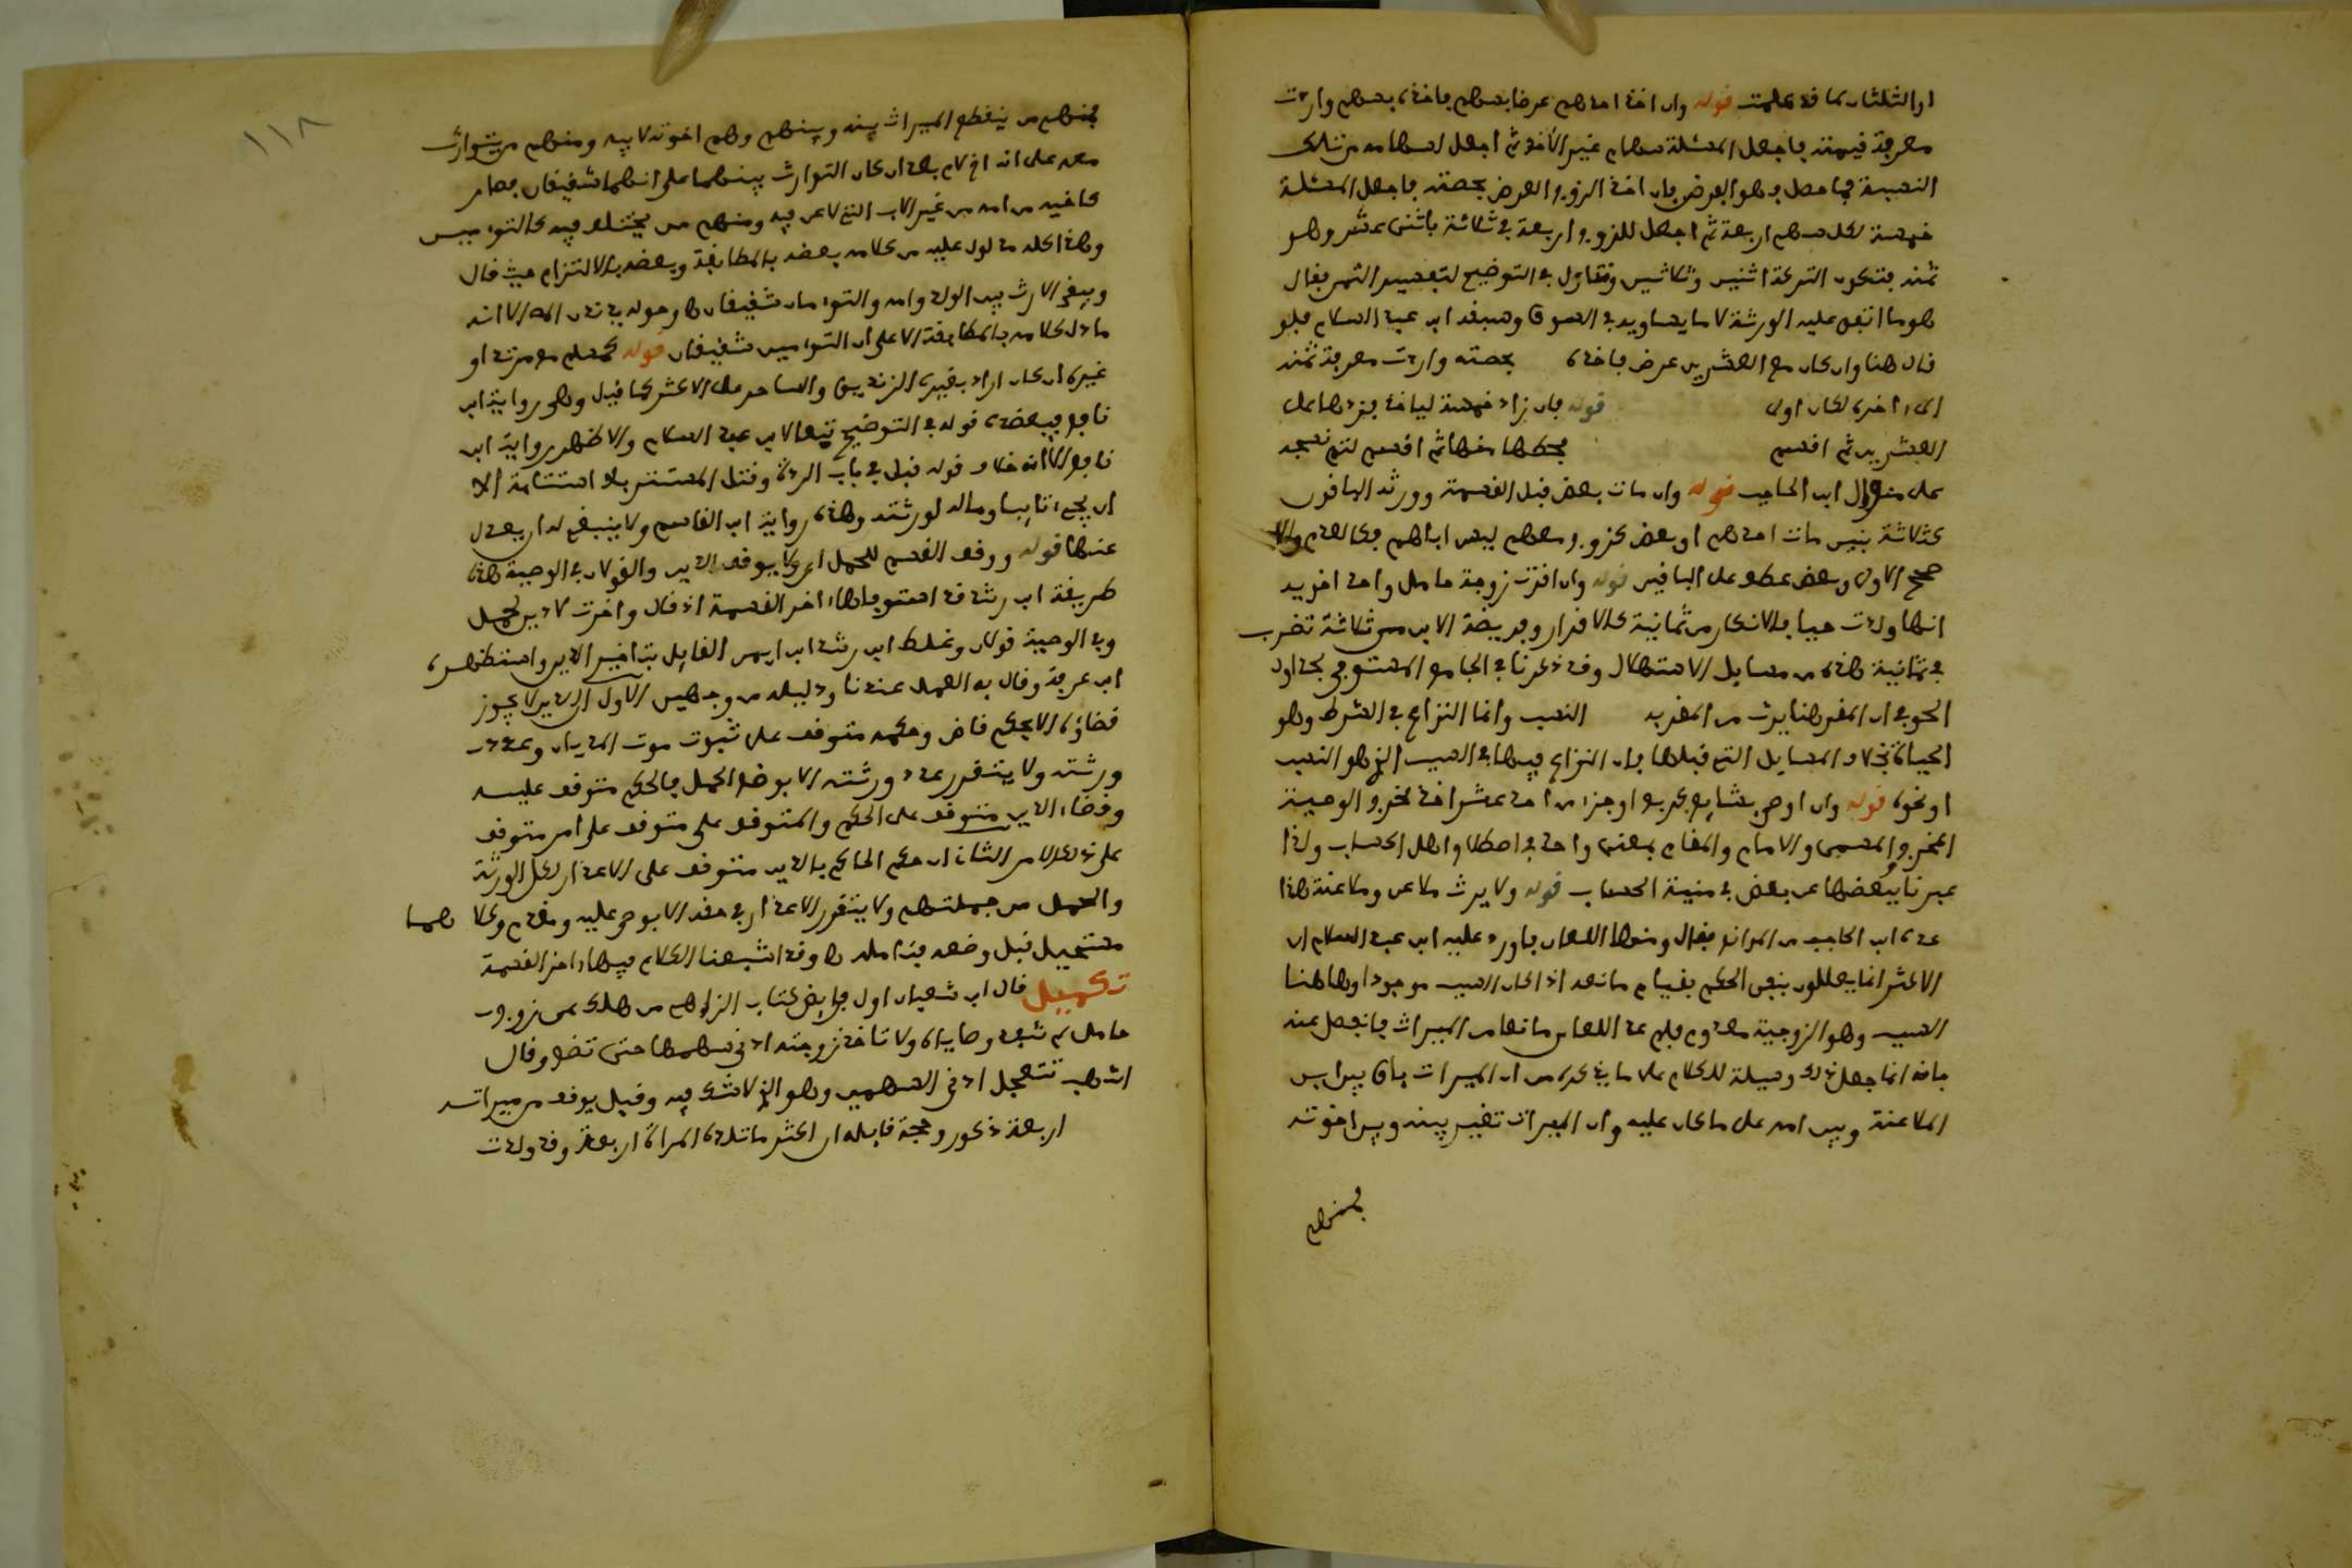 او الثلثان كما قد علمت قوله وإن أخذ أحدهم عرضا بسهم فأخذه بسهم وأردت
معرفة قيمته فاجعل المسئلة سهام غير الآخذ ثم اجعل لسهامه من تلك
النسبة فما حصل فهو العرض فإن أخذ الزوج العرض بحصته فاجعل المسئلة
خمسة لكل سهم أربعة ثم اجعل للزوج أربعة في ثلاثة باثنى عشر وهو
ثمنه فتكون التركة اثنين وثلاثين
هو ما اتفق عليه الورثة لا ما يساويه في السوق وسبقه ابن عبد السلام فلو
قال هنا وإن كان مع العشرين عرض فأخذه بحصته وأردت معرفة ثمنه
إلى آخره لكان أولى قوله فإن زاد خمسة ليأخذ فزدها على
العشرين ثم اقسم
على منوال ابن الحاجب قوله وإن مات بعض قبل القسمة وورثه الباقون
كثلاثة بنين مات أحدهم أو بعض كزوج معهم ليس أباهم فكالعدم وإلا
صحح الأولى وبعض عطف على الباقين قوله وإن أقرت زوجة حامل وأحد أخويه
أنها ولدت حيا فالإنكار من ثمانية كالإقرار وفريضة الابن من ثلاثة تضرب
في ثمانية هذه من مسايل الاستهلال وقد ذكرنا في الجامع المستوفي لجداول
الحوفي أن المقر هنا يرث من المقر به النسب وإنما النزاع في الشرط وهو
الحياة بخلاف المسايل التي قبلها فإن النزاع فيها في السبب الذي هو النسب
أو نحوه قوله وإن أوصى بشايع كربع أو جزء من أحد عشر أخذ مخرج الوصية
المخرج والمسمى والإمام والمقام بمعنى واحد في اصطلاح أهل الحساب ولذا
عبرنا ببعضها عن بعض في منية الحساب قوله ولا يرث ملاعن وملاعنة هذا
عده ابن الحاجب من الموانع فقال ومنها اللعان فأورد عليه ابن عبد السلام أن
الأكثر إنما يعللون بنفي الحكم بقيام مانعه إذا كان السبب موجودا وهاهنا
السبب وهو الزوجية معدوم فلم عد اللعان مانعا من الميراث فانفصل عنه
بأنه إنما جعل ذلك وسيلة للكلام على ما يذكره من أن الميراث باق بين ابن
الملاعنة وبين أمه على ما كان عليه وإن الميراث تغير بينه وبين إخوته
فمنهم
١١٨
فمنهم من ينقطع الميراث بينه وبينهم وهم إخوته لأبيه ومنهم من يتوارث
معه على أنه أخ لأم بعد أن كان التوارث بينهما على أنهما شقيقان فصار
كأخيه من أمه من غير الأب الذي لاعن فيه ومنهم من يختلف فيه كالتوءمين
وهذا كله مدلول عليه من كلامه بعضه بالمطابقة وبعضه بالالتزام حيث قال
وبقي الإرث بين الولد وأمه والتوءمان شقيقان
ما دل كلامه بالمطابقة إلا على أن التوءمين شقيقان قوله كسهم مرتد أو
غيره إن كان أراد بغيره الزنديق والساحر فعلى الأكثر كما قيل وهي رواية ابن
نافع فيعضده قوله في التوضيح تبعا لابن عبد السلام والأظهر رواية ابن
نافع إلا أنه خلاف قوله قبل في باب الردة وقتل المستسر بلا استتابة إلا
أن يجيء تايبا وماله لورثته وهذه رواية ابن القاسم ولا ينبغي له أن يعدل
عنها قوله ووقف القسم للحمل
طريقة ابن رشد
وفي الوصية قولان وغلط ابن رشد ابن أيمن القايل بتأخير الدين واستظهره
ابن عرفة وقال به العمل عندنا ودليله من وجهين الأول أن الدين لا يجوز
قضاؤه إلا بحكم قاض وحكمه متوقف على ثبوت موت المديان وعدد
ورثته ولا يتقرر عدد ورثته إلا بوضع الحمل فالحكم متوقف عليه
وقضاء الدين متوقف على الحكم والمتوقف على متوقف على أمر متوقف
على ذلك الأمر الثاني أن حكم الحاكم بالدين متوقف على الإعذار لكل الورثة
والحمل من جملتهم ولا يتقرر الإعذار في حقه إلا بوصي عليه ومقدم وكلاهما
مستحيل قبل وضعه فتأمله وقد أشبعنا الكلام فيها
تكميل قال ابن شعبان أول فرايض كتاب الزاهي من هلك عن زوجة
حامل لم تنفذ وصاياه ولا تأخذ زوجته أدنى سهمها حتى تضع وقال
أشهب تتعجل أدنى السهمين وهو الذي لا شك فيه وقيل يوقف من ميراثه
أربعة ذكور وحجة قايله أن أكثر ما تلده المرأة أربعة وقد ولدت